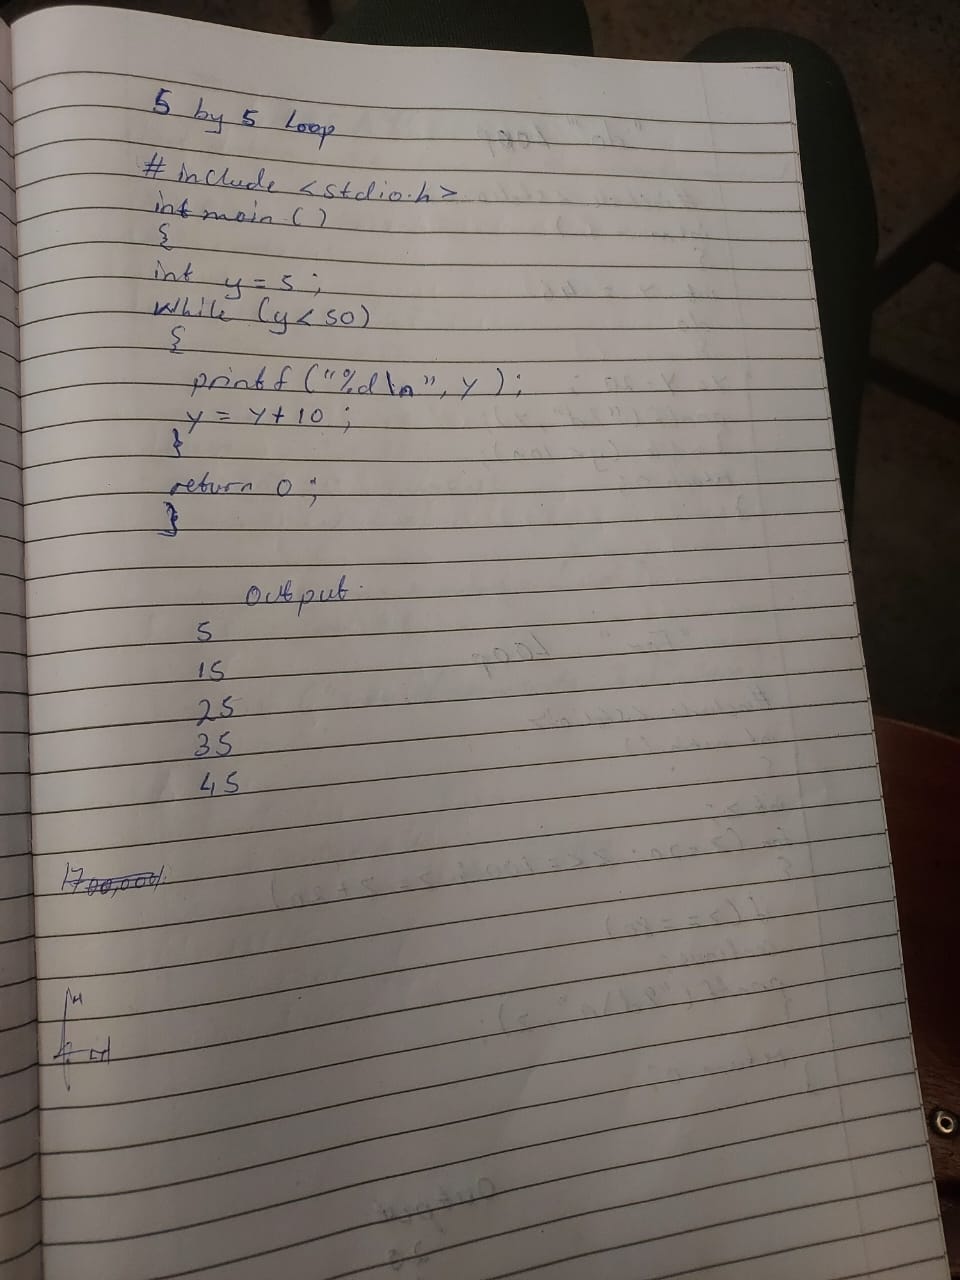 5 by 5 Loop
# include <stdio.h>
int main ()
{
int y = 5 ;
while (y < 50)
{
printf ("%d\n", y ) ;
y = y + 10 ;
}
return 0 ;
}
output.
5
15
25
35
45